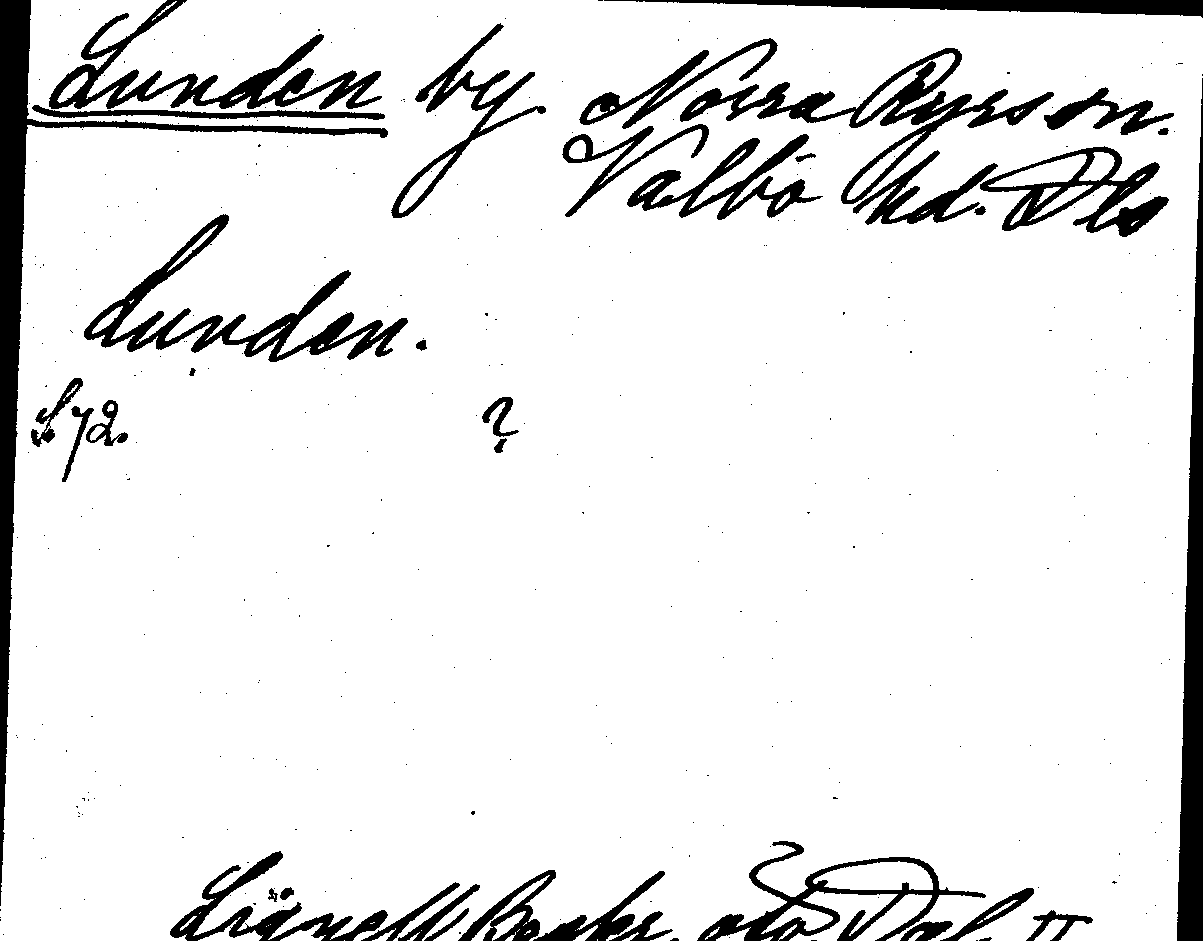 Lunden by. Norra Ryrs sn.
Valbo hd. Dls
Lunden.
S. 72. ?
Lignell Beskr. öfv. Dal II